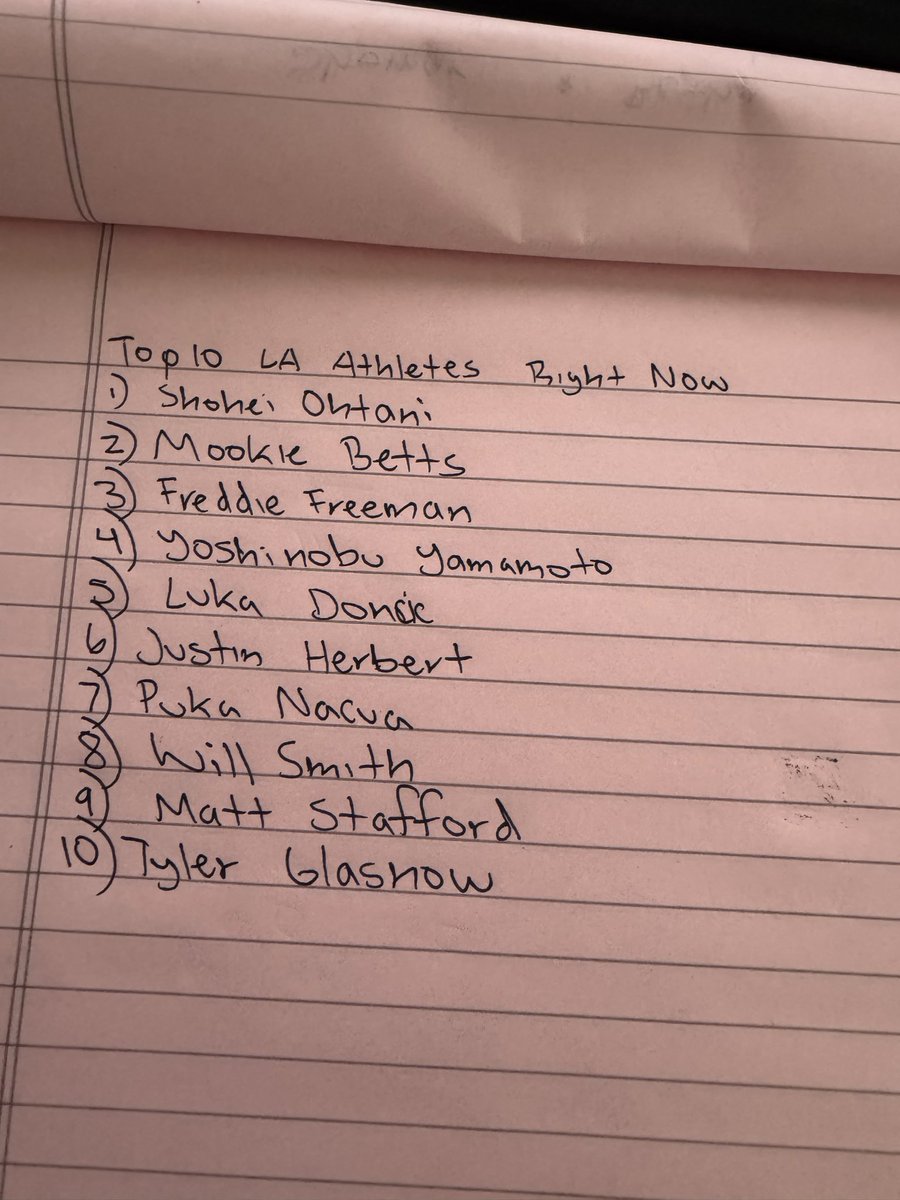 Top 10 LA Athletes Right Now
1) Shohei Ohtani
2) Mookie Betts
3) Freddie Freeman
4) Yoshinobu Yamamoto
5) Luka Doncic
6) Justin Herbert
7) Puka Nacua
8) Will Smith
9) Matt Stafford
10) Tyler Glasnow